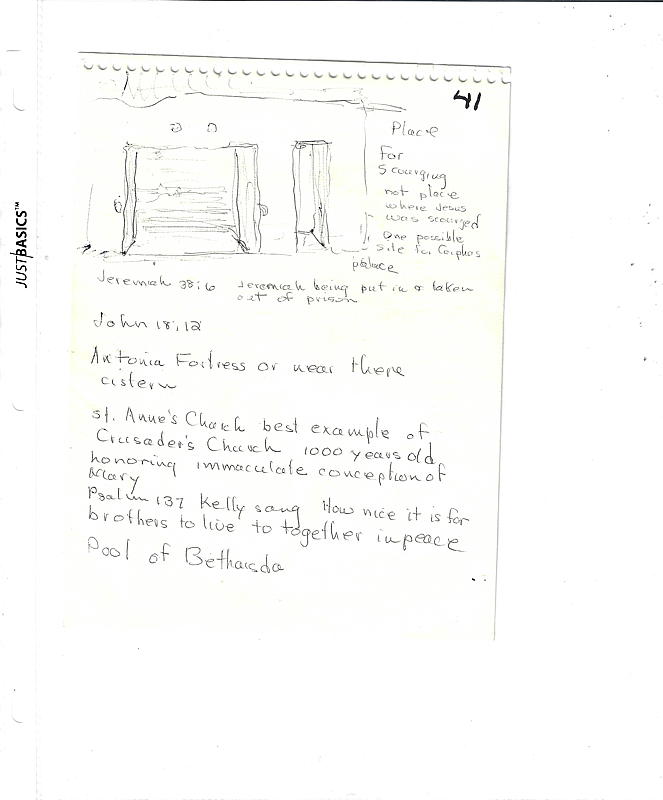 41
Place
For
Scourging
not place
where Jesus
was scourged
One possible
site for Caiphas
palace
Jeremiah 38:6 Jeremiah being put in & taken
out of prison
John 18:12
Antonia Fortress or near there
cistern
St. Anne's Church best example of
Crusader's Church 1000 years old
honoring immaculate conception of
Mary
Psalm 137 Kelly sang How nice it is for
brothers to live to together in peace
Pool of Bethaisda
JUST/BASICS™